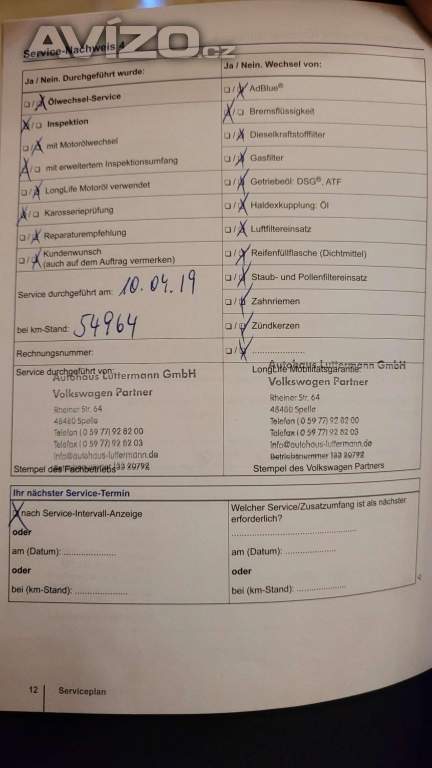 AVÍZO.cz
Service-Nachweis 4
Ja / Nein. Durchgeführt wurde:
☐/☒ Ölwechsel-Service
☒/☐ Inspektion
☐/☒ mit Motorölwechsel
☒/☐ mit erweitertem Inspektionsumfang
☐/☒ LongLife Motoröl verwendet
☒/☐ Karosserieprüfung
☐/☒ Reparaturempfehlung
☐/☒ Kundenwunsch
(auch auf dem Auftrag vermerken)
Service durchgeführt am: 10.04.19
bei km-Stand: 54964
Rechnungsnummer:
Service durchgeführt von:
Autohaus Lüttermann GmbH
Volkswagen Partner
Rheiner Str. 64
48480 Spelle
Telefon (0 59 77) 92 82 00
Telefax (0 59 77) 92 82 03
info@autohaus-luttermann.de
Betriebsnummer 133 20792
Stempel des Fachbetriebs
Ja / Nein. Wechsel von:
☐/☒ AdBlue®
☒/☐ Bremsflüssigkeit
☐/☒ Dieselkraftstofffilter
☐/☒ Gasfilter
☐/☒ Getriebeöl: DSG®, ATF
☐/☒ Haldexkupplung: Öl
☐/☒ Luftfiltereinsatz
☐/☒ Reifenfüllflasche (Dichtmittel)
☐/☒ Staub- und Pollenfiltereinsatz
☐/☒ Zahnriemen
☐/☒ Zündkerzen
☐/☒ ....................
LongLife Mobilitätsgarantie:
Autohaus Lüttermann GmbH
Volkswagen Partner
Rheiner Str. 64
48480 Spelle
Telefon (0 59 77) 92 82 00
Telefax (0 59 77) 92 82 03
info@autohaus-luttermann.de
Betriebsnummer 133 20792
Stempel des Volkswagen Partners
Ihr nächster Service-Termin
☒ nach Service-Intervall-Anzeige
oder
am (Datum): ....................
oder
bei (km-Stand): ....................
Welcher Service/Zusatzumfang ist als nächster
erforderlich?
....................
am (Datum): ....................
oder
bei (km-Stand): ....................
12 Serviceplan